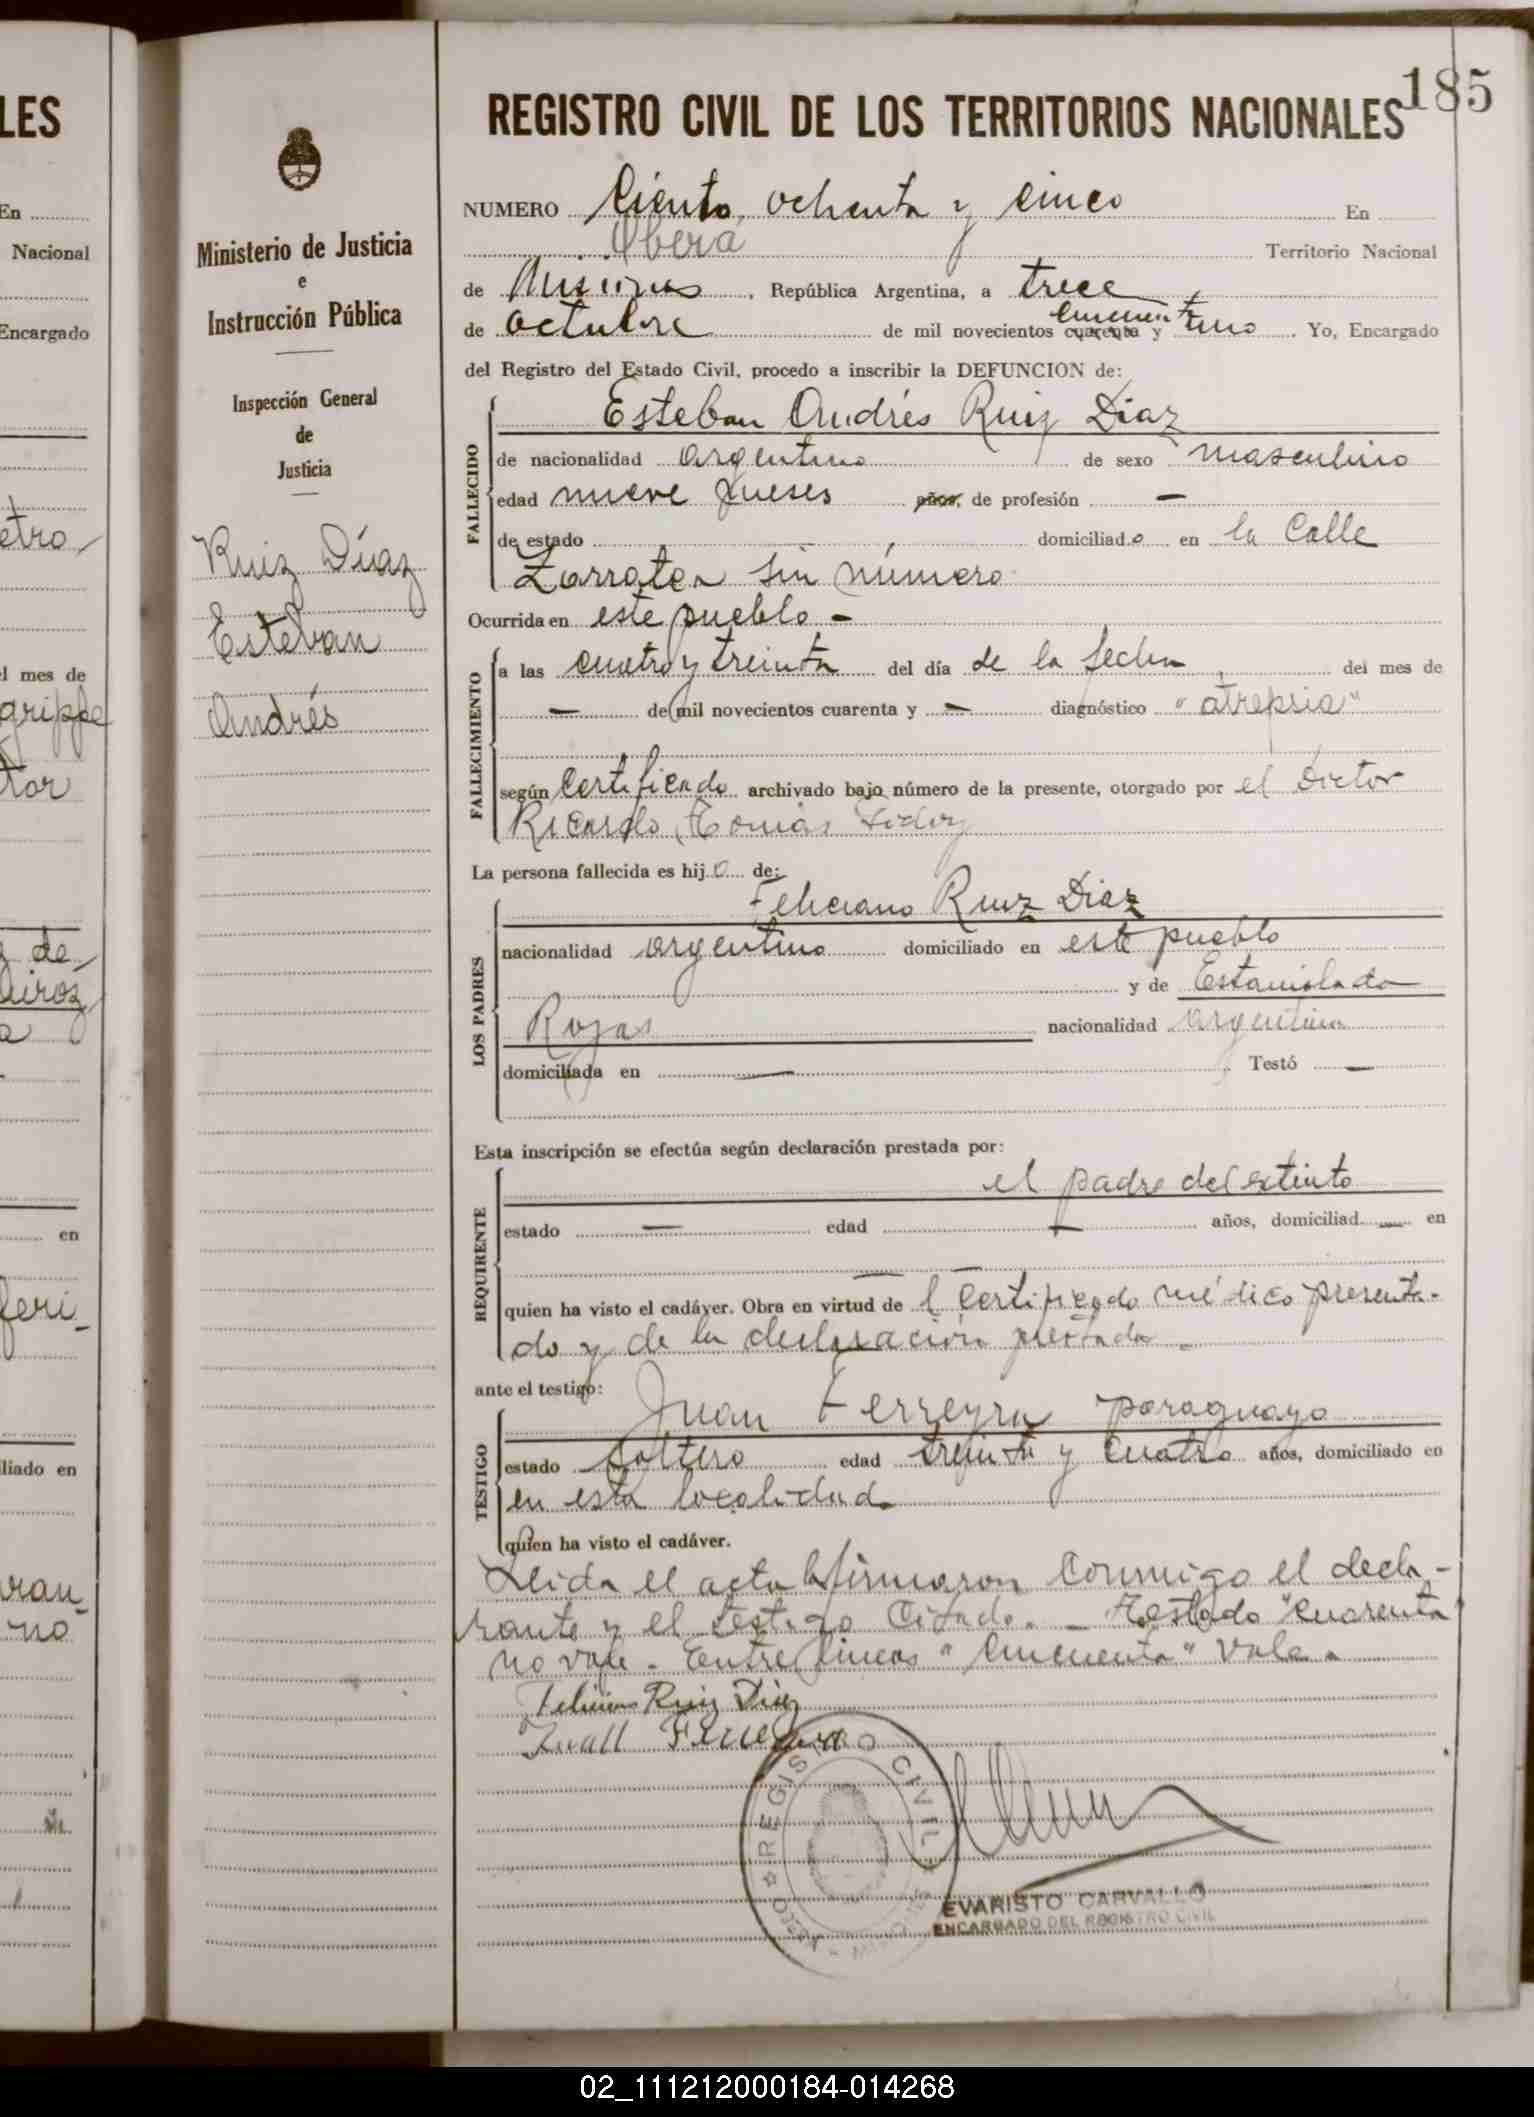 LES
En
Nacional
Encargado
etro
el mes de
grippe
tor
de
en
feri
liado en
no
185
Ministerio de Justicia
e
Instrucción Pública
Inspección General
de
Justicia
Ruiz Díaz
Esteban
Andrés
REGISTRO CIVIL DE LOS TERRITORIOS NACIONALES
NUMERO Ciento ochenta y cinco En
Oberá Territorio Nacional
de Misiones, República Argentina, a trece
cincuen
de octubre de mil novecientos cuarenta y uno. Yo, Encargado
del Registro del Estado Civil, procedo a inscribir la DEFUNCION de:
FALLECIDO
Esteban Andrés Ruiz Diaz
de nacionalidad argentino de sexo masculino
edad nueve meses años, de profesión —
de estado domiciliado en la Calle
sin número
Ocurrida en este pueblo -
FALLECIMIENTO
a las cuatro y treinta del día de la fecha del mes de
— de mil novecientos cuarenta y — diagnóstico "atrepsia"
según certificado archivado bajo número de la presente, otorgado por el Doctor
Ricardo Tomás Godoy
La persona fallecida es hijo de:
LOS PADRES
Feliciano Ruiz Diaz
nacionalidad argentino domiciliado en este pueblo
y de Estanislada
Rojas nacionalidad argentina
domiciliada en — Testó —
Esta inscripción se efectúa según declaración prestada por:
REQUIRENTE
el padre del extinto
estado — edad — años, domiciliad — en
quien ha visto el cadáver. Obra en virtud del certificado médico presenta-
do y de la declaración prestada
ante el testigo:
TESTIGO
Juan Ferreyra paraguayo
estado soltero edad treinta y cuatro años, domiciliado en
en esta localidad.
quien ha visto el cadáver.
Leida el acta la firmaron conmigo el decla-
rante y el testigo citado. - Testado "cuarenta
no vale - Entre lineas "cincuenta" vale.
Feliciano Ruiz Diaz
Juan Ferreyra
REGISTRO CIVIL
EVARISTO CARVALLO
ENCARGADO DEL REGISTRO CIVIL
02_111212000184-014268